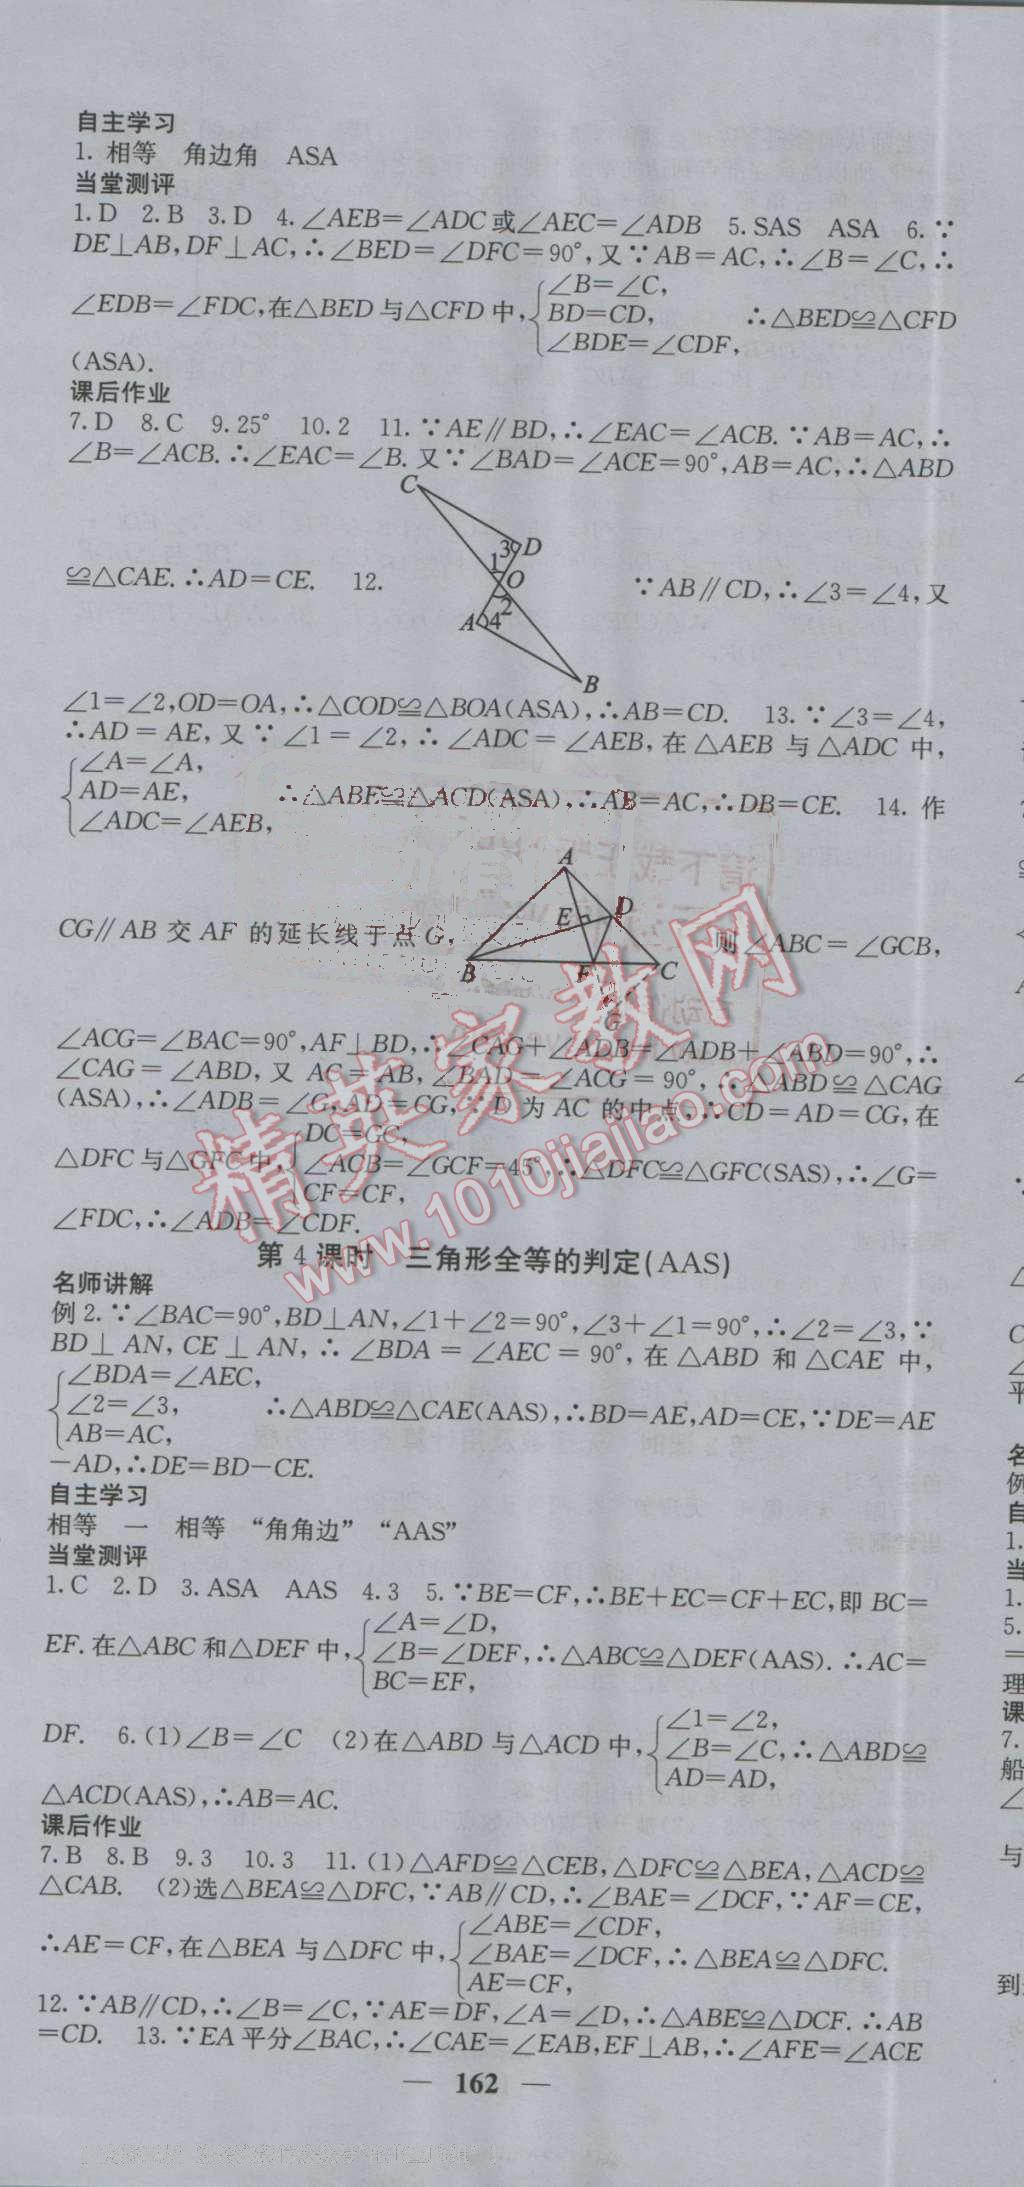 自主学习
1. 相等 角边角 ASA
当堂测评
1.D 2.B 3.D 4.∠AEB=∠ADC或∠AEC=∠ADB 5.SAS ASA 6.∵
DE⊥AB,DF⊥AC,∴∠BED=∠DFC=90°,又∵AB=AC,∴∠B=∠C,∴
∠EDB=∠FDC,在△BED与△CFD中,{∠B=∠C, BD=CD, ∠BDE=∠CDF, ∴△BED≌△CFD
(ASA).
课后作业
7.D 8.C 9.25° 10.2 11.∵AE∥BD,∴∠EAC=∠ACB.∵AB=AC,∴
∠B=∠ACB.∴∠EAC=∠B.又∵∠BAD=∠ACE=90°,AB=AC,∴△ABD
≌△CAE.∴AD=CE. 12. C 3 D 1 O 2 A 4 B ∵AB∥CD,∴∠3=∠4,又
∠1=∠2,OD=OA,∴△COD≌△BOA(ASA),∴AB=CD. 13.∵∠3=∠4,
∴AD=AE,又∵∠1=∠2,∴∠ADC=∠AEB,在△AEB与△ADC中,
{∠A=∠A, AD=AE, ∠ADC=∠AEB, ∴△ABE≌△ACD(ASA),∴AB=AC,∴DB=CE. 14. 作
CG∥AB交AF的延长线于点G, A E D B F C G 则∠ABC=∠GCB,
∠ACG=∠BAC=90°,AF⊥BD,∴∠CAG+∠ADB=∠ADB+∠ABD=90°,∴
∠CAG=∠ABD,又AC=AB,∠BAD=∠ACG=90°,∴△ABD≌△CAG
(ASA),∴∠ADB=∠G,AD=CG,∵D为AC的中点,∴CD=AD=CG,在
△DFC与△GFC中,{DC=GC, ∠ACB=∠GCF=45°, CF=CF, ∴△DFC≌△GFC(SAS),∴∠G=
∠FDC,∴∠ADB=∠CDF.
第4课时 三角形全等的判定(AAS)
名师讲解
例2.∵∠BAC=90°,BD⊥AN,∠1+∠2=90°,∠3+∠1=90°,∴∠2=∠3,∵
BD⊥AN,CE⊥AN,∴∠BDA=∠AEC=90°,在△ABD和△CAE中,
{∠BDA=∠AEC, ∠2=∠3, AB=AC, ∴△ABD≌△CAE(AAS),∴BD=AE,AD=CE,∵DE=AE
-AD,∴DE=BD-CE.
自主学习
相等 一 相等 “角角边” “AAS”
当堂测评
1.C 2.D 3.ASA AAS 4.3 5.∵BE=CF,∴BE+EC=CF+EC,即BC=
EF.在△ABC和△DEF中,{∠A=∠D, ∠B=∠DEF, BC=EF, ∴△ABC≌△DEF(AAS).∴AC=
DF. 6.(1)∠B=∠C (2)在△ABD与△ACD中,{∠1=∠2, ∠B=∠C, AD=AD, ∴△ABD≌
△ACD(AAS),∴AB=AC.
课后作业
7.B 8.B 9.3 10.3 11.(1)△AFD≌△CEB,△DFC≌△BEA,△ACD≌
△CAB. (2)选△BEA≌△DFC,∵AB∥CD,∴∠BAE=∠DCF,∵AF=CE,
∴AE=CF,在△BEA与△DFC中,{∠ABE=∠CDF, ∠BAE=∠DCF, AE=CF, ∴△BEA≌△DFC.
12.∵AB∥CD,∴∠B=∠C,∵AE=DF,∠A=∠D,∴△ABE≌△DCF.∴AB
=CD. 13.∵EA平分∠BAC,∴∠CAE=∠EAB,EF⊥AB,∴∠AFE=∠ACE
— 162 —
精英家教网
www.1010jiajiao.com